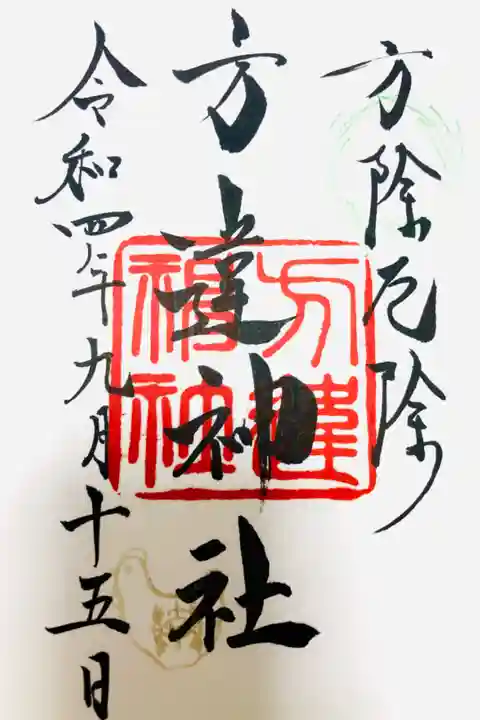 方除厄除
方違神社
令和四年九月十五日